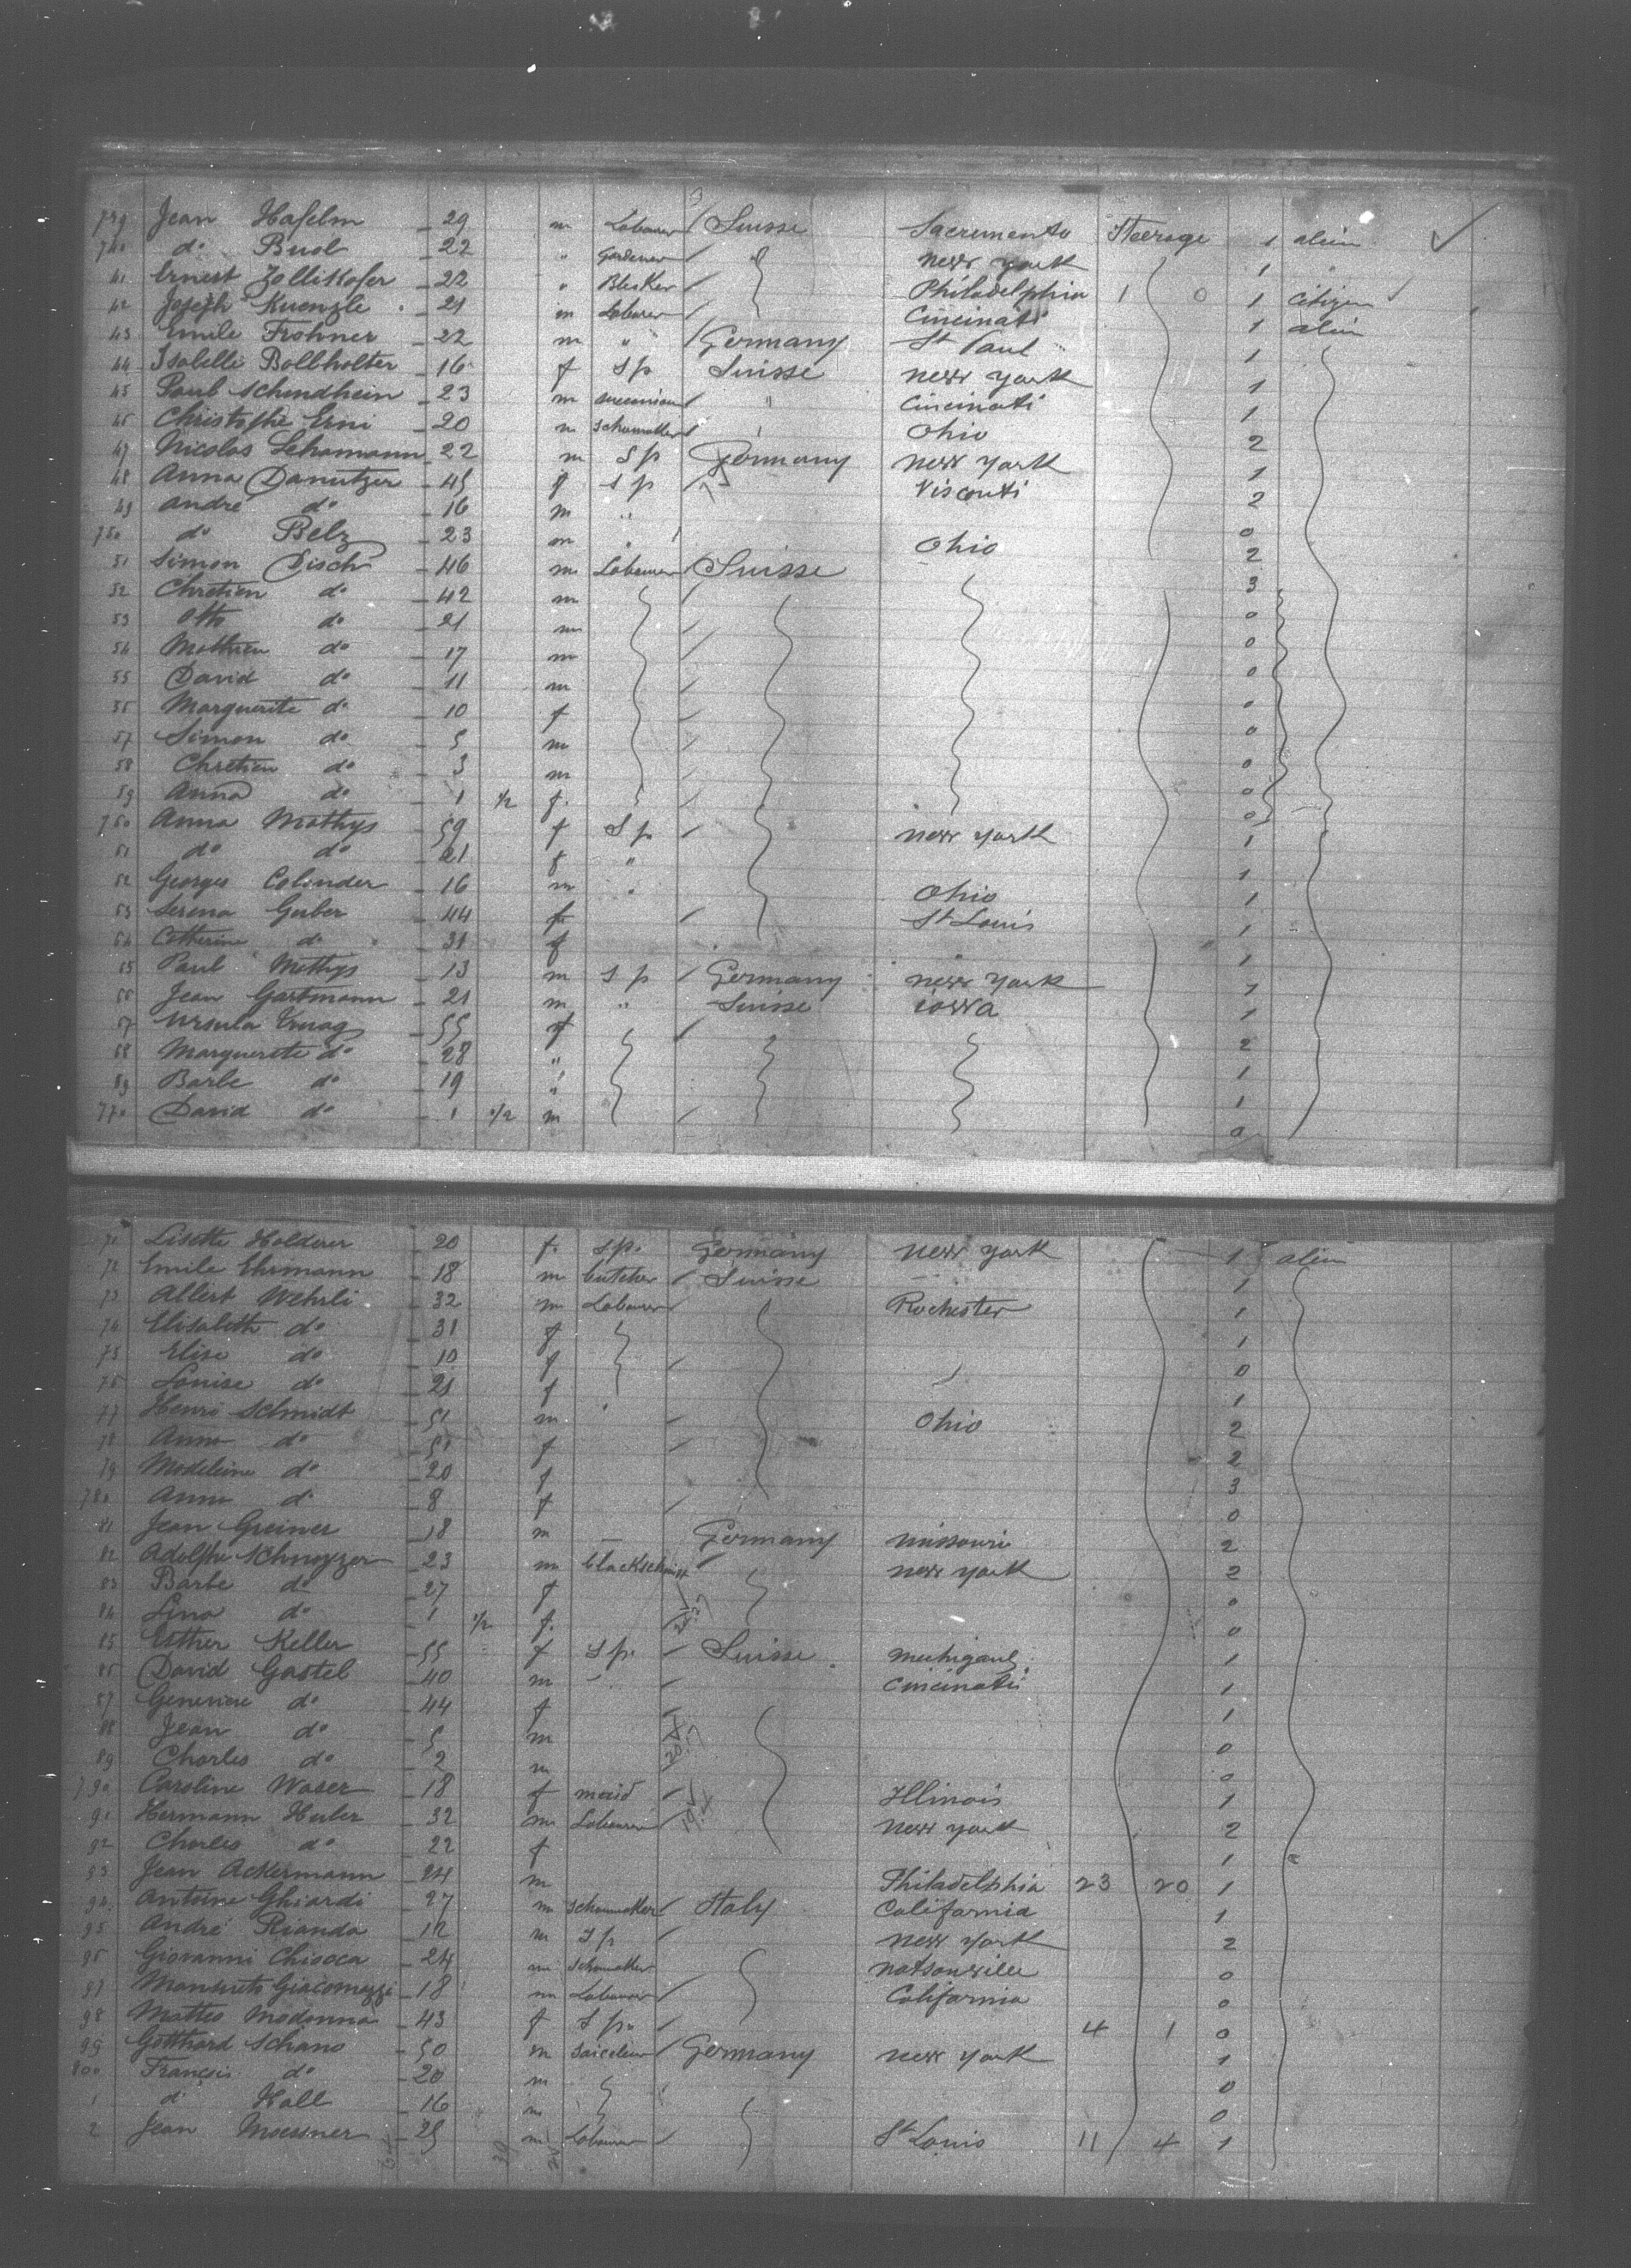 739 Jean Hafelm 29 m Labourer Suisse Sacremento Steerage 1 alien
740 do Buol 22 " Gardener new york 1 "
41 Ernest Zollikofer 22 " Philadelphia 1 0 1 citizen
42 Joseph Kuenzle 21 m Labourer Cincinati 1 alien
43 Emile Frohner 22 m " Germany St Paul 1
44 Isabelle Bollholter 16 f Sp Suisse new york 1
45 Paul Schindhein 23 m " Cincinati 1
46 Christophe Erni 20 m Schumaker Ohio 2
47 Nicolas Lehamann 22 m Sp Germany new york 1
48 Anna Danutzer 45 f Sp Visconti 2
49 André do 16 m " 0
750 do Belz 23 m Ohio 2
51 Simon Disch 46 m Labourer Suisse 3
52 Chretien do 42 m 0
53 Otto do 21 m 0
54 Mathieu do 17 m 0
55 David do 11 m 0
56 Marguerite do 10 f 0
57 Simon do 5 m 0
58 Chretien do 3 m 0
59 Anna do 1 1/2 f. 0
760 Anna Mathys 59 f Sp new york 1
61 do do 21 f " 1
62 Georges Colinder 16 m " Ohio 1
63 Serena Gerber 44 f St Louis 1
64 Catherine do 31 f 1
65 Paul Mathys 13 m Sp Germany new york 1
66 Jean Gartmann 21 m " Suisse iowa 1
67 Ursula 55 f 2
68 Marguerite do 28 " 1
69 Barbe do 19 " 1
770 David do 1 1/2 m 0
71 Lisette Holderer 20 f. Sp. Germany new york 1 alien
72 Emile Ehrmann 18 m butcher Suisse 1
73 Albert Wehrli 32 m Labourer Rochester 1
74 Elisabeth do 31 f 1
75 Elise do 10 f 0
76 Louise do 21 f 1
77 Henri Schmidt 51 m " Ohio 2
78 Anna do 51 f 2
79 Madeleine do 20 f 3
780 Anna do 8 f 0
81 Jean Greiner 18 m — Germany missouri 2
82 Adolphe Schnyzer 23 m blackschmist new york 2
83 Barbe do 27 f 0
84 Lina do 1 1/2 f. 0
85 Esther Keller 55 f Sp. Suisse michigang 1
86 David Gastel 40 m Cincinati 1
87 Genevieve do 44 f 1
88 Jean do 5 m 0
89 Charles do 2 m 0
790 Caroline Waser 18 f maid Illinois 1
91 Hermann Huber 32 m Labourer new york 2
92 Charles do 22 f 1
93 Jean Ackermann 24 m Philadelphia 23 20 1
94 Antoine Ghiardi 27 m Schumaker Italy California 1
95 André Rianda 12 m Sp new york 2
96 Giovanni Chiooca 24 m Schumaker Natsonville 0
97 Giacomazzi 18 m Labourer California 0
98 Matteo Madonna 43 f Sp. 4 1 0
99 Gotthard Schano 50 m Germany new york 1
800 François do 20 m 0
1 do Hall 16 m 0
2 Jean Moessner 25 m Labourer St Louis 11 4 1